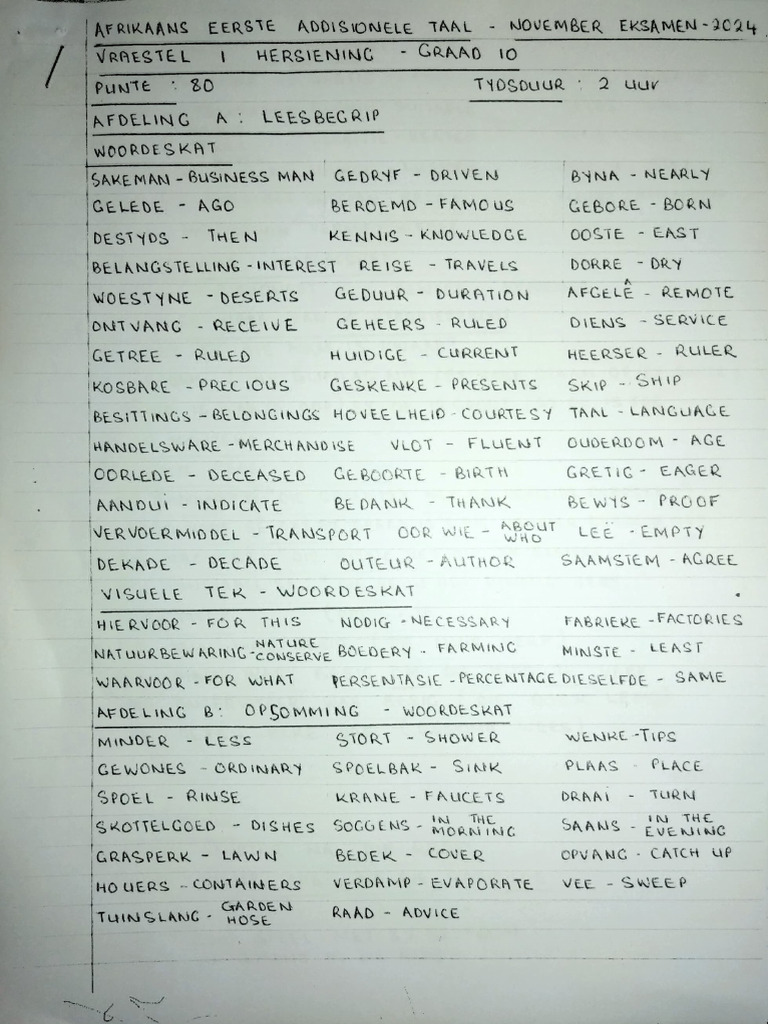 AFRIKAANS EERSTE ADDISIONELE TAAL - NOVEMBER EKSAMEN - 2024
VRAESTEL 1 HERSIENING - GRAAD 10
PUNTE : 80 TYDSDUUR : 2 UUR
AFDELING A : LEESBEGRIP
WOORDESKAT
SAKEMAN - BUSINESS MAN GEDRYF - DRIVEN BYNA - NEARLY
GELEDE - AGO BEROEMD - FAMOUS GEBORE - BORN
DESTYDS - THEN KENNIS - KNOWLEDGE OOSTE - EAST
BELANGSTELLING - INTEREST REISE - TRAVELS DORRE - DRY
WOESTYNE - DESERTS GEDUUR - DURATION AFGELÊ - REMOTE
ONTVANG - RECEIVE GEHEERS - RULED DIENS - SERVICE
GETREE - RULED HUIDIGE - CURRENT HEERSER - RULER
KOSBARE - PRECIOUS GESKENKE - PRESENTS SKIP - SHIP
BESITTINGS - BELONGINGS HOVEELHEID - COURTESY TAAL - LANGUAGE
HANDELSWARE - MERCHANDISE VLOT - FLUENT OUDERDOM - AGE
OORLEDE - DECEASED GEBOORTE - BIRTH GRETIG - EAGER
AANDUI - INDICATE BEDANK - THANK BEWYS - PROOF
VERVOERMIDDEL - TRANSPORT OOR WIE - ABOUT WHO LEË - EMPTY
DEKADE - DECADE OUTEUR - AUTHOR SAAMSTEM - AGREE
VISUELE TEK - WOORDESKAT
HIERVOOR - FOR THIS NODIG - NECESSARY FABRIEKE - FACTORIES
NATUURBEWARING - NATURE CONSERVE BOEDERY - FARMING MINSTE - LEAST
WAARVOOR - FOR WHAT PERSENTASIE - PERCENTAGE DIESELFDE - SAME
AFDELING B : OPSOMMING - WOORDESKAT
MINDER - LESS STORT - SHOWER WENKE - TIPS
GEWONES - ORDINARY SPOELBAK - SINK PLAAS - PLACE
SPOEL - RINSE KRANE - FAUCETS DRAAI - TURN
SKOTTELGOED - DISHES SOGGENS - IN THE MORNING SAANS - IN THE EVENING
GRASPERK - LAWN BEDEK - COVER OPVANG - CATCH UP
HOUERS - CONTAINERS VERDAMP - EVAPORATE VEE - SWEEP
TUINSLANG - GARDEN HOSE RAAD - ADVICE